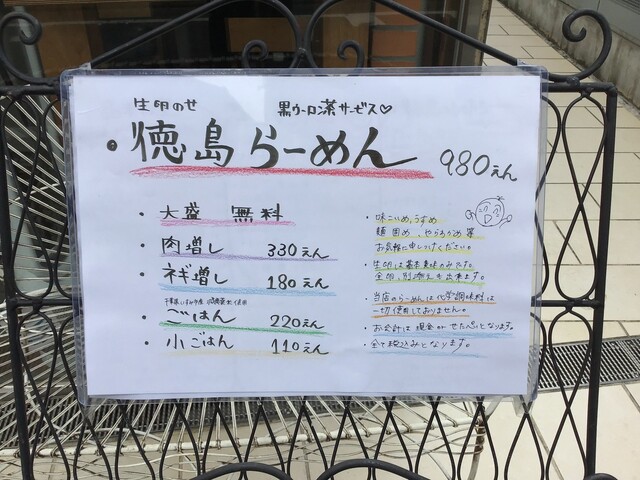 生卵のせ 黒ウーロン茶サービス♡
・徳島らーめん 980えん
・大盛 無料
・肉増し 330えん
・ネギ増し 180えん
・ごはん 220えん
・小ごはん 110えん
・味こいめ、うすめ
麺固め、やわらかめ等
お気軽に申しつけください。
・生卵は基本黄味のみです。
全卵、別添えも出来ます。
・当店のらーめんは化学調味料は
一切使用しておりません。
・お会計は現金かせたpayとなります。
・全て税込みとなります。